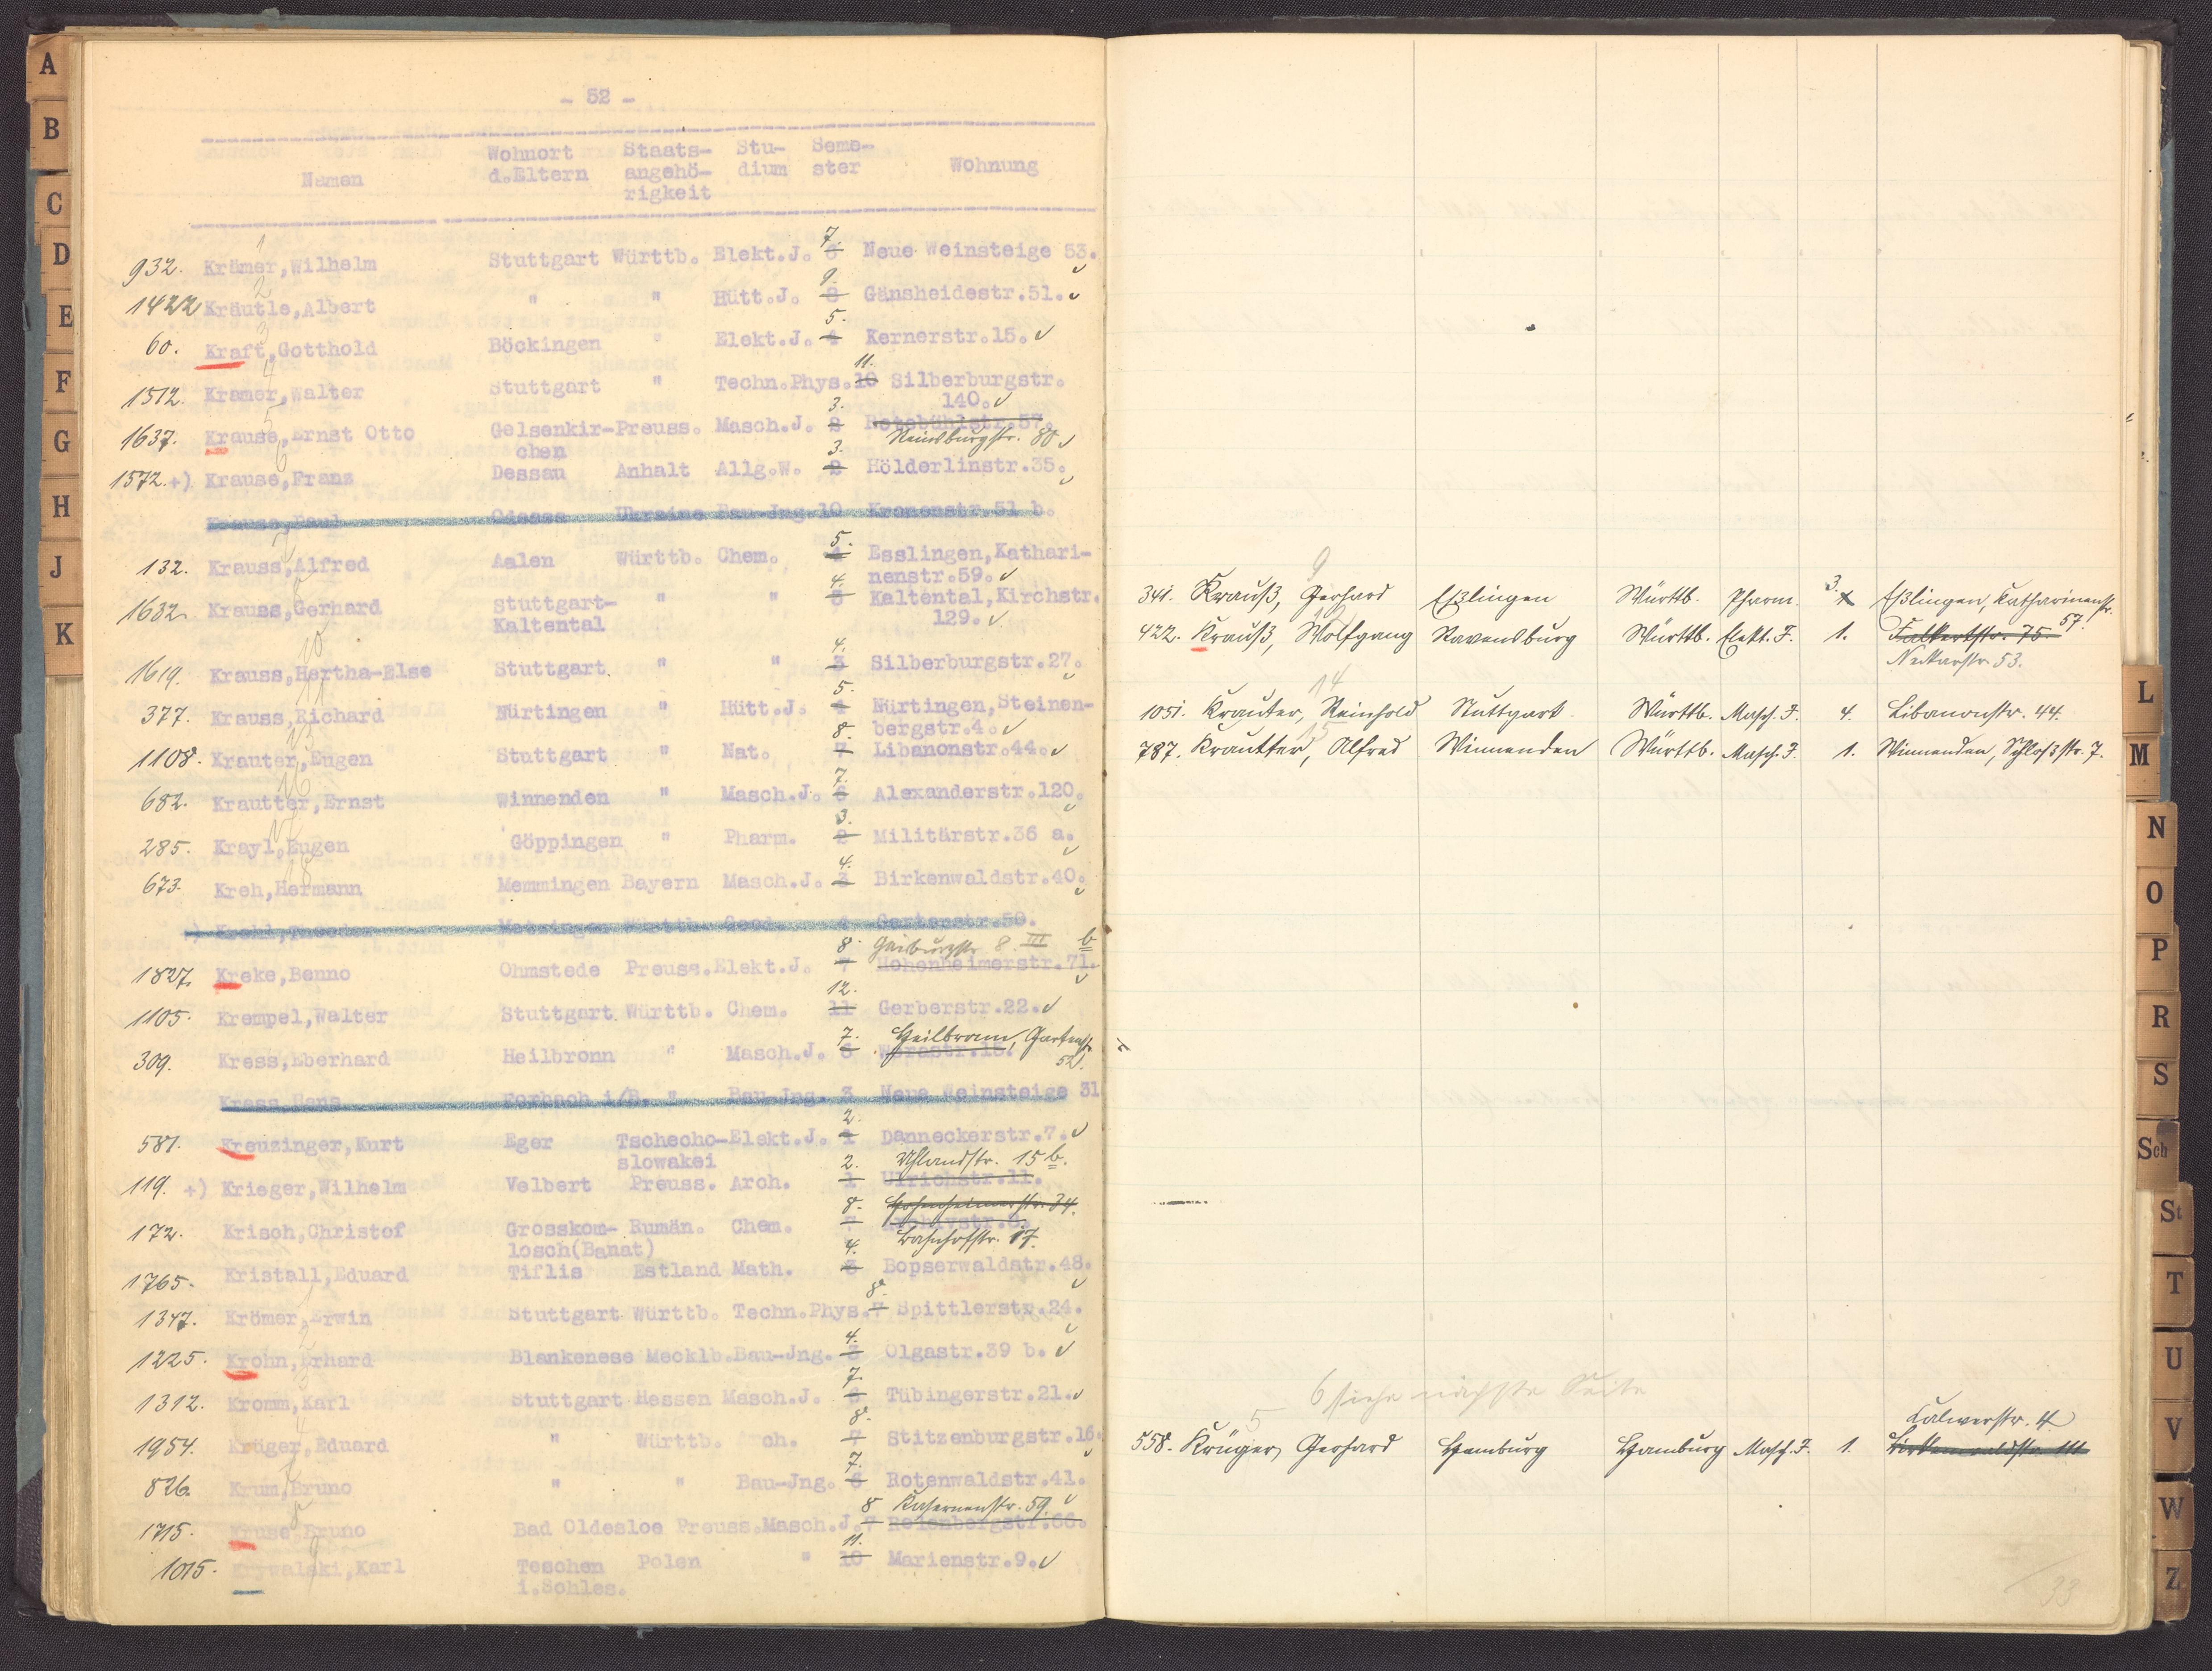 - 52 -
Namen Wohnort d.Eltern Staats-angehö-rigkeit Stu-dium Seme-ster Wohnung
1
7.
932. Krämer,Wilhelm Stuttgart Württb. Elekt.J. 6 Neue Weinsteige 53.
2
9.
1422 Kräutle,Albert " " Hütt.J. 8 Gänsheidestr.51.
3
5.
60. Kraft,Gotthold Böckingen " Elekt.J. 4 Kernerstr.15.
4
11.
1512. Kramer,Walter Stuttgart " Techn.Phys.10 Silberburgstr.
140.
5
3.
1637. Krause,Ernst Otto Gelsenkir- Preuss. Masch.J. 2 Rotebühlstr.57.
chen Reinsburgstr. 80
6
3.
1572. +) Krause,Franz Dessau Anhalt Allg.W. 2 Hölderlinstr.35.
Krause,Paul Odessa Ukraine Bau-Jng.10 Kronenstr.51 b.
7
5.
132. Krauss,Alfred Aalen Württb. Chem. 4 Esslingen,Kathari-
nenstr.59.
8
4.
1632. Krauss,Gerhard Stuttgart- " " 3 Kaltental,Kirchstr.
Kaltental 129.
10
4.
1619. Krauss,Hertha-Else Stuttgart " " 3 Silberburgstr.27.
11
5.
377. Krauss,Richard Nürtingen " Hütt.J. 4 Nürtingen,Steinen-
bergstr.4.
13
8.
1108. Krauter,Eugen Stuttgart " Nat. 7 Libanonstr.44.
16
7.
682. Krautter,Ernst Winnenden " Masch.J. 6 Alexanderstr.120.
17
3.
285. Krayl,Eugen Göppingen " Pharm. 2 Militärstr.36 a.
18
4.
673. Kreh,Hermann Memmingen Bayern Masch.J. 3 Birkenwaldstr.40.
Metzingen Württb. Geod. Gartenstr.50.
8. Gaisburgstr. 8. III b
1827. Kreke,Benno Ohmstede Preuss.Elekt.J. 7 Hohenheimerstr.71.
12.
1105. Krempel,Walter Stuttgart Württb. Chem. 11 Gerberstr.22.
7. Heilbronn, Gartenstr.
309. Kress,Eberhard Heilbronn " Masch.J. 6 Werastr.15.
52.
Kress,Hans Forbach i/B. " Bau-Jng. 3 Neue Weinsteige 31
2.
587. Kreuzinger,Kurt Eger Tschecho- Elekt.J. 1 Danneckerstr.7.
slowakei
2. Uhlandstr. 15 b.
119. +) Krieger,Wilhelm Velbert Preuss. Arch. 1 Ulrichstr.11.
8. Hohenheimerstr. 34.
172. Krisch,Christof Grosskom- Rumän. Chem. 7
losch(Banat) Bahnhofstr. 17.
4.
1765. Kristall,Eduard Tiflis Estland Math. 3 Bopserwaldstr.48.
1
8.
1347. Krömer,Erwin Stuttgart Württb. Techn.Phys.7 Spittlerstr.24.
2
4.
1225. Krohn,Erhard Blankenese Mecklb.Bau-Jng. 3 Olgastr.39 b.
3
7.
1312. Kromm,Karl Stuttgart Hessen Masch.J. 6 Tübingerstr.21.
4
8.
1954. Krüger,Eduard " Württb. Arch. 7 Stitzenburgstr.16.
7
7.
826. Krum,Bruno " " Bau-Jng. 6 Rotenwaldstr.41.
8
8 Kasernenstr. 59.
1715. Kruse,Bruno Bad Oldesloe Preuss.Masch.J.7 Relenbergstr.66.
9
11.
1015. Krywalski,Karl Teschen Polen " 10 Marienstr.9.
i.Schles.
9
341. Krauß, Gerhard Eßlingen Württb. Pharm. 3. Eßlingen, Katharinenstr.
57.
12
422. Krauß, Wolfgang Ravensburg Württb. Elekt. J. 1. Falkertstr. 75.
Neckarstr. 53.
14
1051. Krauter, Reinhold Stuttgart. Württb. Masch. J. 4. Libanonstr. 44.
15
787. Krautter, Alfred Winnenden Württb. Masch. J. 1. Winnenden, Schloßstr. 7.
6 siehe nächste Seite
Calwerstr. 4
5
558. Krüger, Gerhard Hamburg Hamburg Masch. J. 1. Birkenwaldstr. 111
33
A
B
C
D
E
F
G
H
J
K
L
M
N
O
P
R
S
Sch
St
T
U
V
W
Z